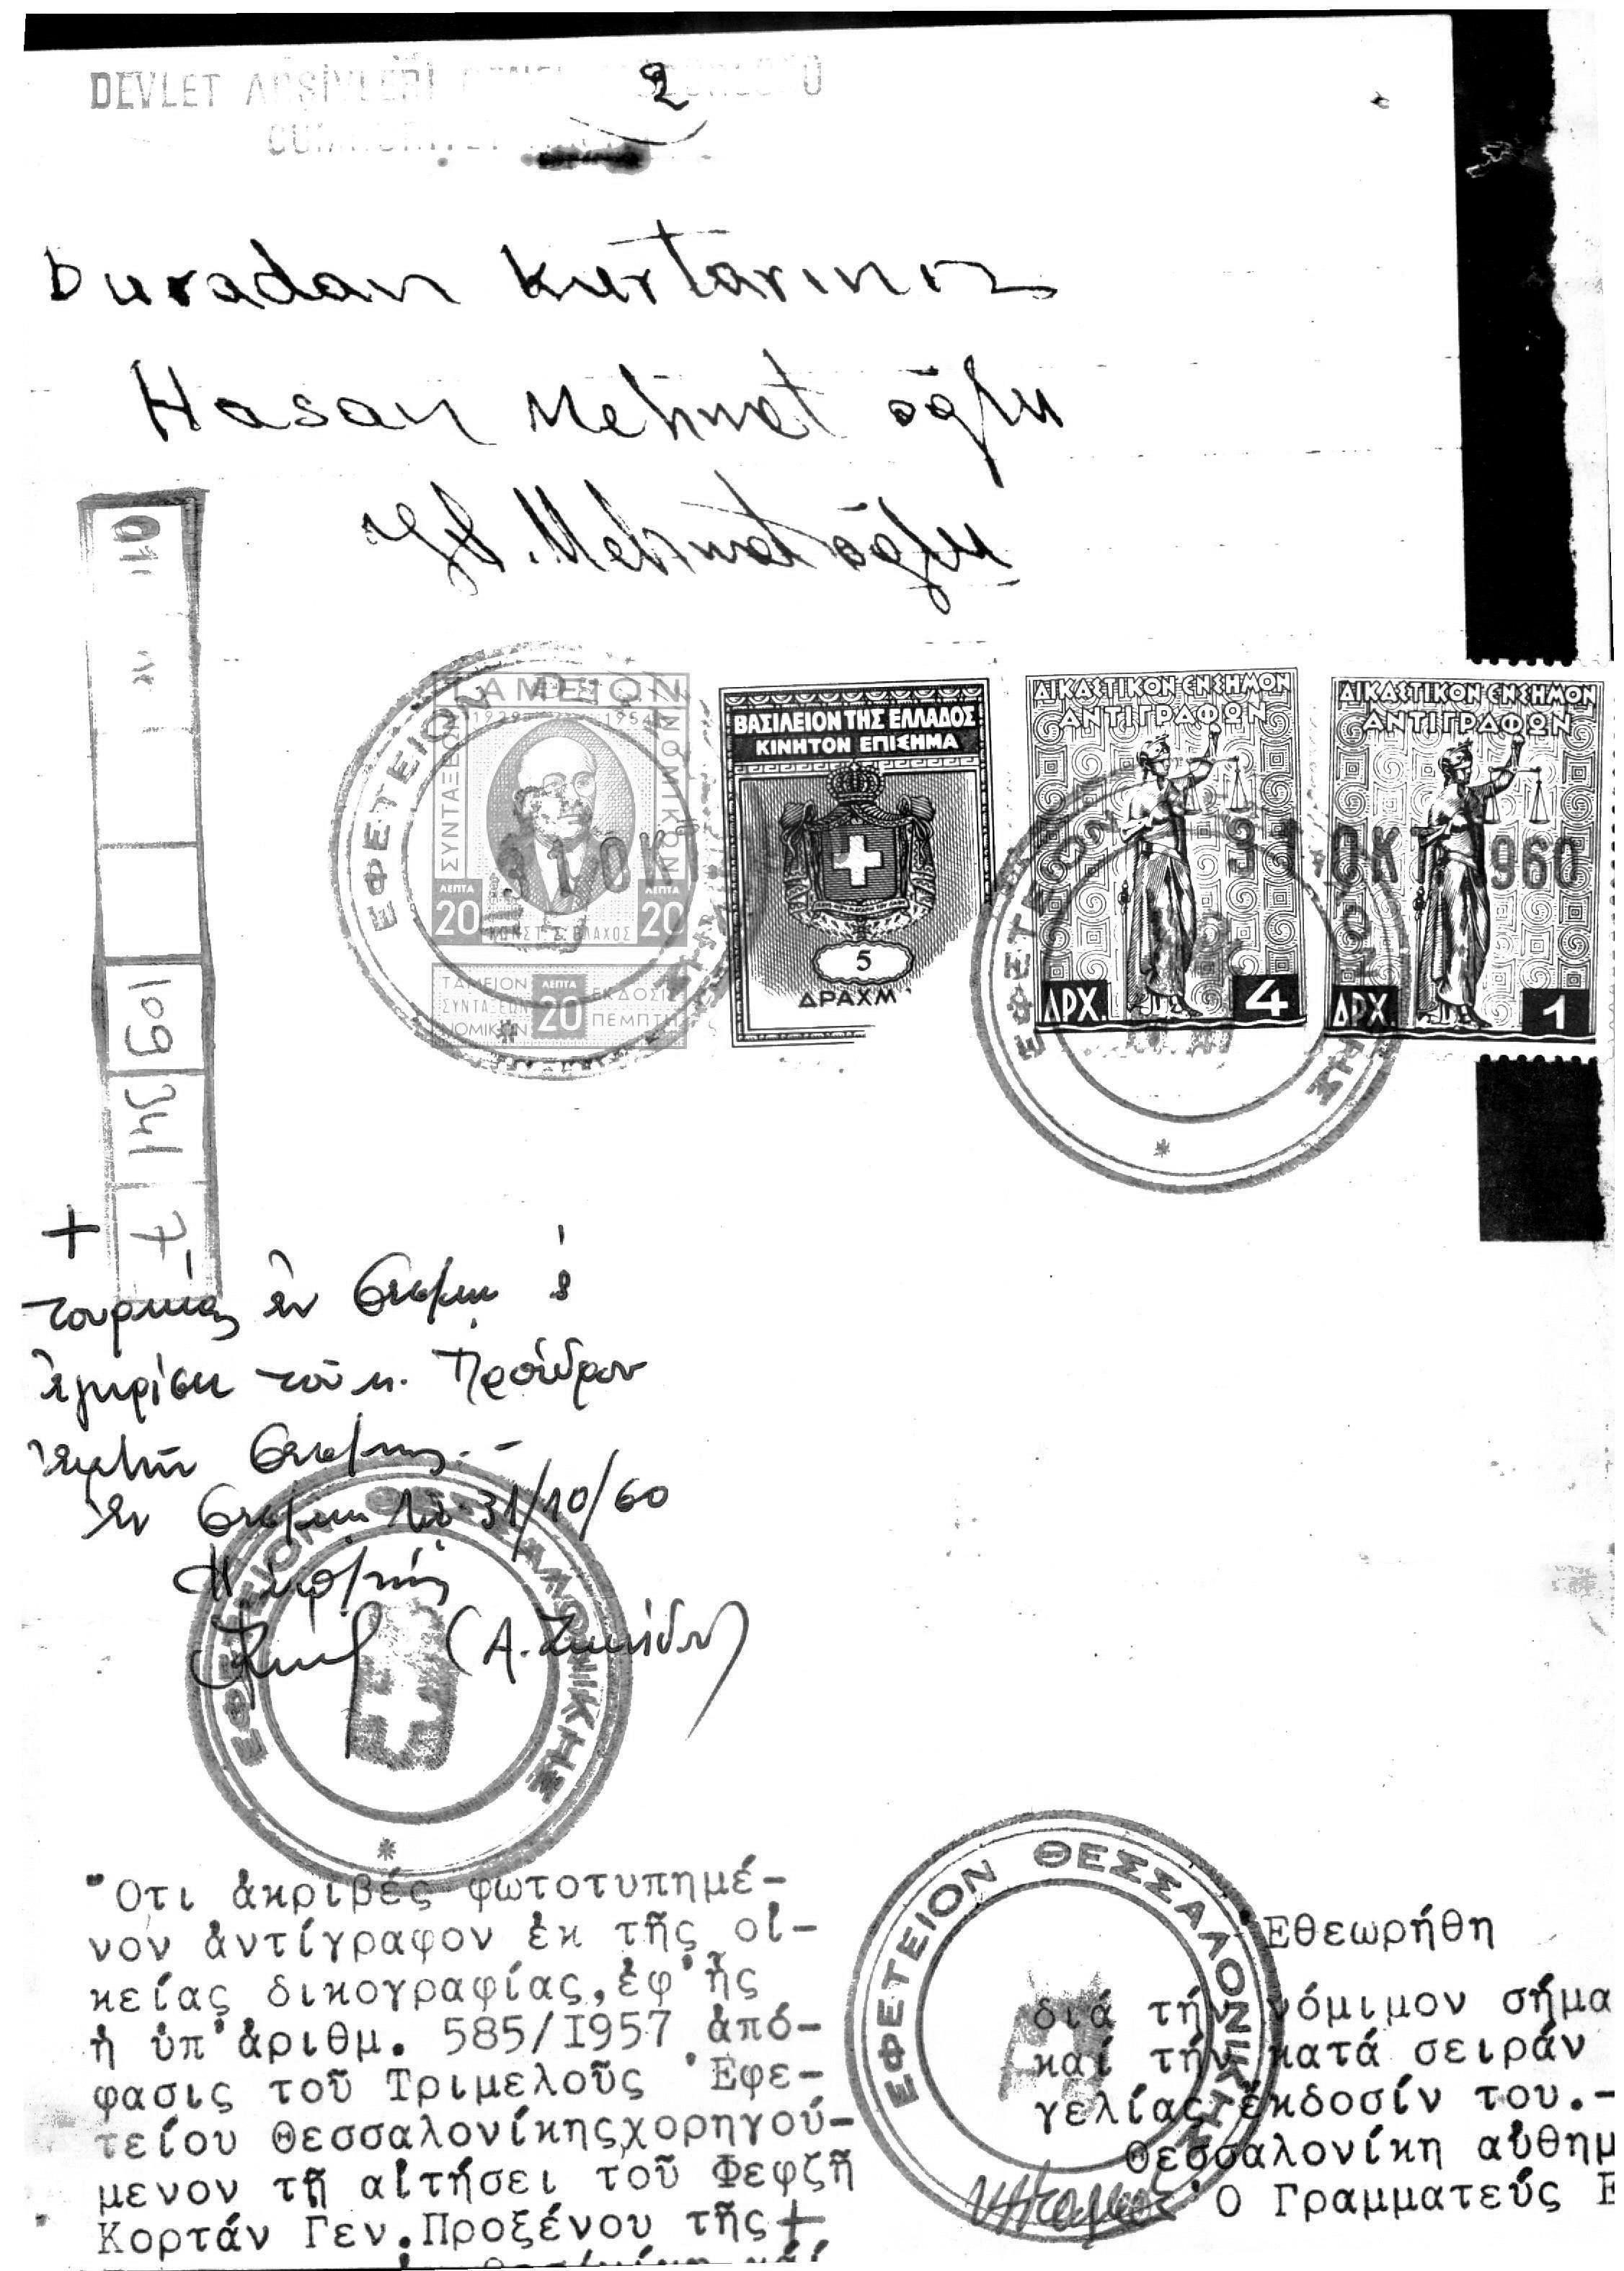 DEVLET ARŞİVLERİ
2
Buradan kurtarınız
Hasan Mehmet oğlu
H. Mehmet oğlu
109 341 7
ΕΦΕΤΕΙΟΝ
ΤΑΜΕΙΟΝ
ΣΥΝΤΑΞΕΩΝ
ΝΟΜΙΚΩΝ
1929 1954
31 ΟΚΤ
ΛΕΠΤΑ 20
ΛΕΠΤΑ 20
ΚΩΝΣΤ. Σ. ΒΛΑΧΟΣ
ΤΑΜΕΙΟΝ
ΣΥΝΤΑΞΕΩΝ
ΝΟΜΙΚΩΝ
ΛΕΠΤΑ 20
ΕΚΔΟΣΙΣ
ΠΕΜΠΤΗ
ΒΑΣΙΛΕΙΟΝ ΤΗΣ ΕΛΛΑΔΟΣ
ΚΙΝΗΤΟΝ ΕΠΙΣΗΜΑ
5
ΔΡΑΧΜ
ΔΙΚΑΣΤΙΚΟΝ ΕΝΣΗΜΟΝ
ΑΝΤΙΓΡΑΦΩΝ
ΔΡΧ. 4
ΔΙΚΑΣΤΙΚΟΝ ΕΝΣΗΜΟΝ
ΑΝΤΙΓΡΑΦΩΝ
ΔΡΧ. 1
31 ΟΚΤ 1960
ΕΦΕΤΕΙΟΝ
+
τουρκίας ἐν Θεσ/κη
ἐγκρίσει τοῦ κ. Προέδρου
Ἐφετῶν Θεσ/κης.-
Ἐν Θεσ/κη τῇ 31/10/60
ΕΦΕΤΕΙΟΝ ΘΕΣΣΑΛΟΝΙΚΗΣ
Ὅτι ἀκριβές φωτοτυπημέ-
νον ἀντίγραφον ἐκ τῆς οἰ-
κείας δικογραφίας,ἐφ'ἧς
ἡ ὑπ'ἀριθμ. 585/1957 ἀπό-
φασις τοῦ Τριμελοῦς Ἐφε-
τείου Θεσσαλονίκης χορηγού-
μενον τῇ αἰτήσει τοῦ Φεφζῆ
Κορτάν Γεν.Προξένου τῆς +
ΕΦΕΤΕΙΟΝ ΘΕΣΣΑΛΟΝΙΚΗΣ
Ἐθεωρήθη
διά τήν νόμιμον σήμα
καί τήν κατά σειράν
γελίας ἔκδοσίν του.-
Θεσσαλονίκη αὐθημ
Ὁ Γραμματεύς Ε